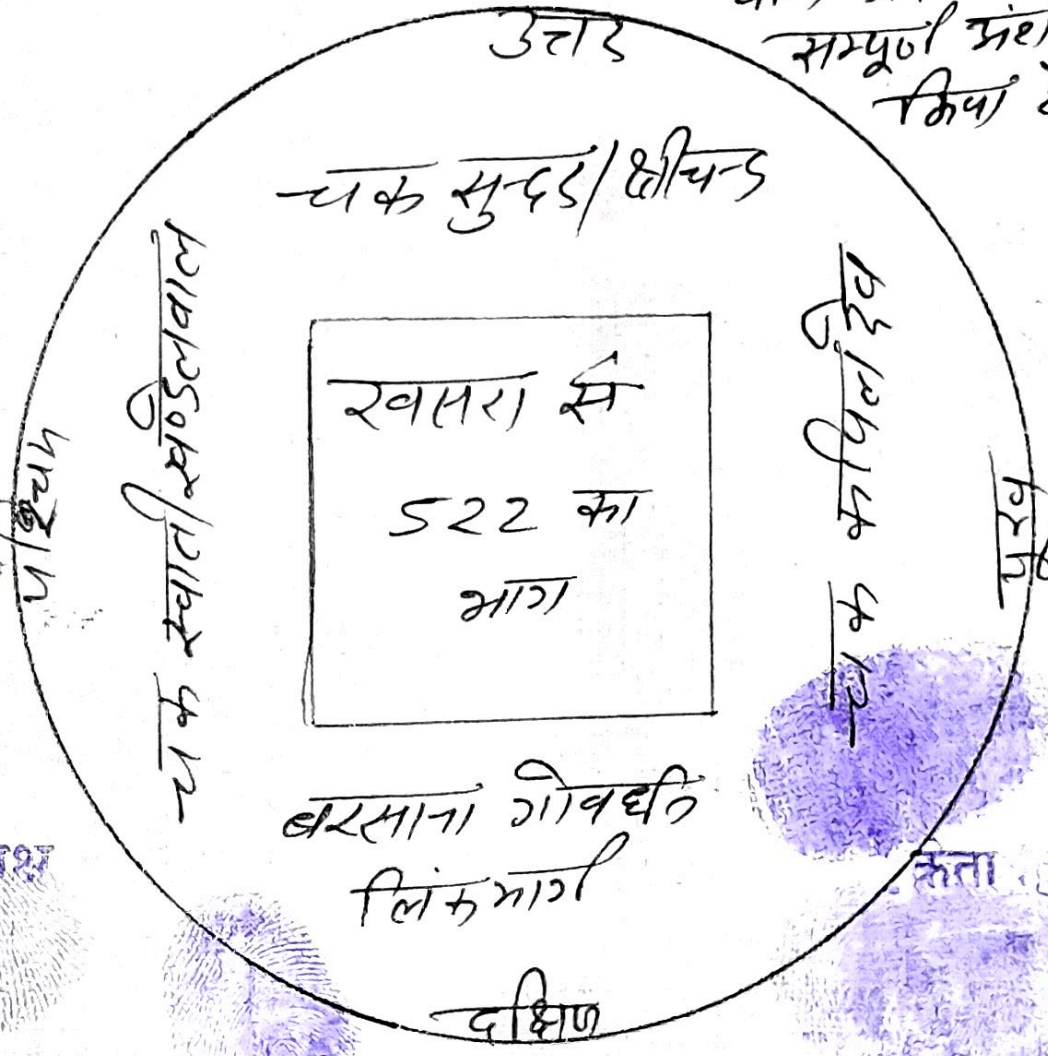 सम्पूर्ण अंश
किया है
उत्तर
चक सुन्दर/श्रीचन्द
पश्चिम
चक स्वाति/खण्डेलवाल
खसरा सं
522 का
भाग
चक कपिल देव
पूरव
बरसाना गोवर्धन
लिंक मार्ग
दक्षिण
क्रेता